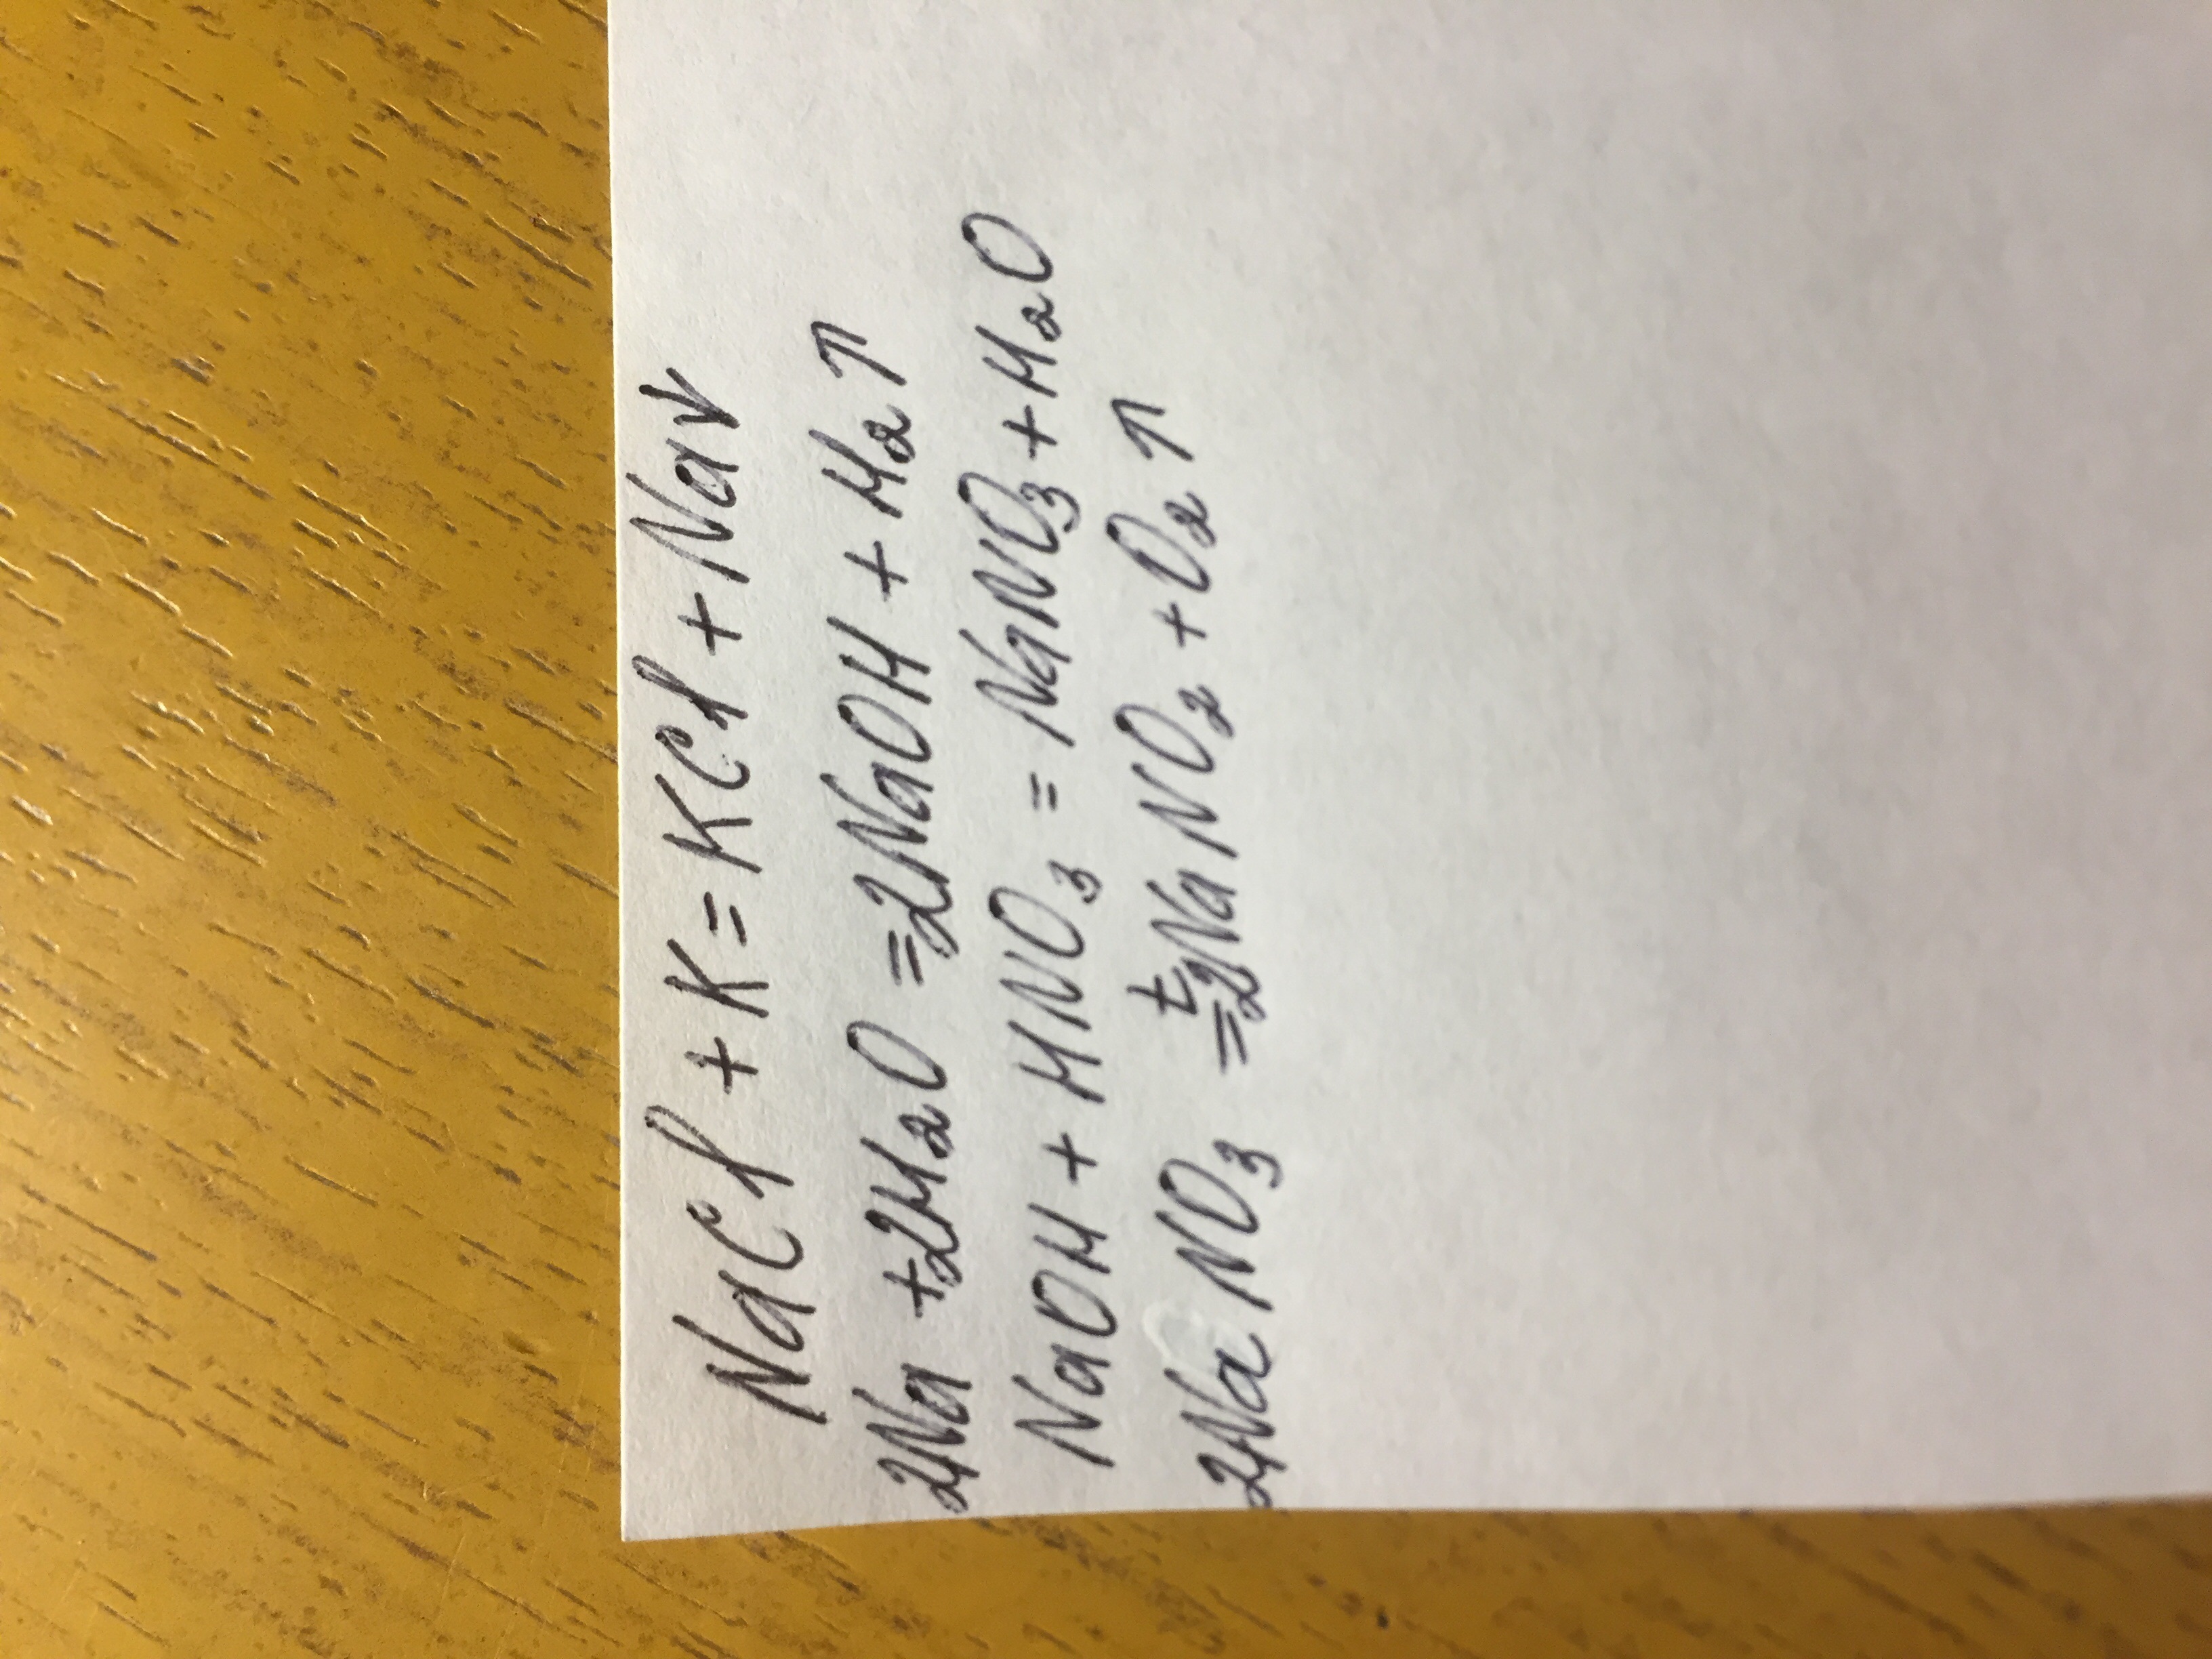 NaCl + K = KCl + Na↓
2Na + 2H₂O = 2NaOH + H₂↑
NaOH + HNO₃ = NaNO₃ + H₂O
2NaNO₃ =ᵗ 2NaNO₂ + O₂↑